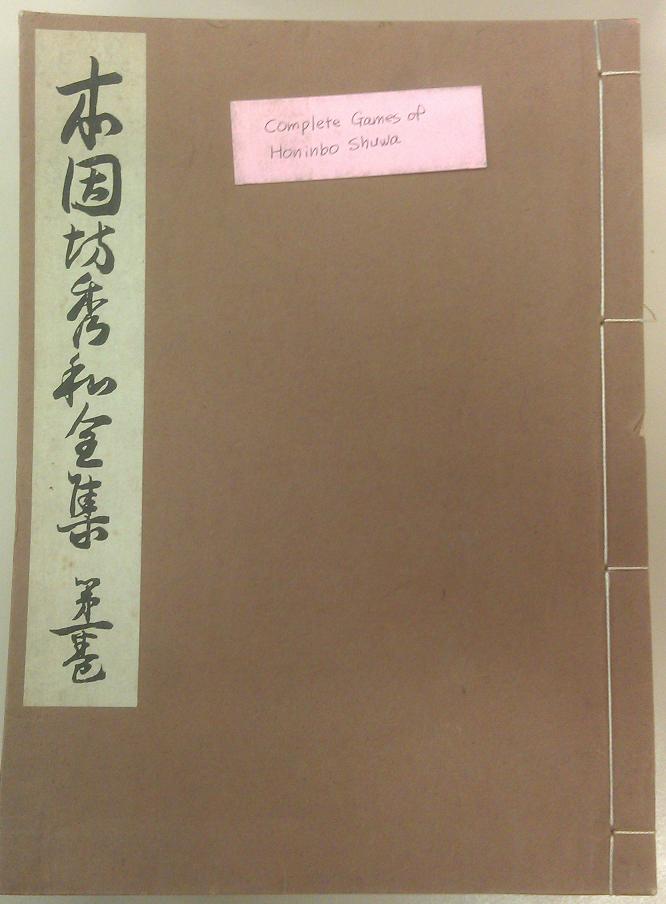 本因坊秀和全集 第一巻
Complete Games of
Honinbo Shuwa